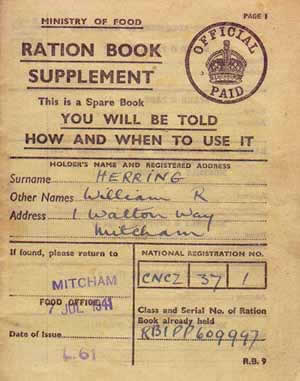 MINISTRY OF FOOD
PAGE 1
RATION BOOK
SUPPLEMENT
OFFICIAL
PAID
This is a Spare Book
YOU WILL BE TOLD
HOW AND WHEN TO USE IT
HOLDER'S NAME AND REGISTERED ADDRESS
Surname HERRING
Other Names William R
Address 1 Walton Way
Mitcham
If found, please return to
MITCHAM
FOOD OFFICE
7 JUL 1941
Date of Issue
L.61
NATIONAL REGISTRATION NO.
CNCZ 37 1
Class and Serial No. of Ration
Book already held
RB1PP609997
R.B. 9